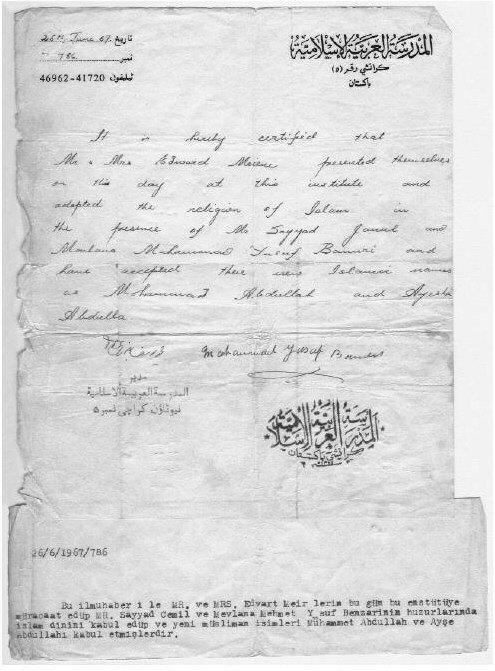 المدرسة العربية الإسلامية
كراتشي رقم (٥)
پاکستان
تاريخ 26th June 67.
نمبر 786
ٹیلیفون 46962-41720
It is hereby certified that
Mr & Mrs Edward presented themselves
on this day at this institute and
adopted the religion of Islam in
the presence of Mr Sayyad Jamil and
Maulana Muhammad Yusuf Banuri and
have accepted their new Islamic names
as Mohammad Abdullah and Ayesha
Abdulla
Mohammad Yusuf Banuri
مدير
المدرسة العربية الاسلامية
نيوٹاؤن، كراچی نمبر ۵
المدرسة العربية الإسلامية
كراتشي پاکستان
26/6/1967/786
Bu ilmuhaber i le MR. ve MRS. Edvart Meir lerin bu gün bu enstütüye
müracaat edüp MR. Sayyad Cemil ve Mevlana Mehmet Y suf Benzarinin huzurlarında
islam dinini kabul edüp ve yeni müslüman isimleri Mühammet Abdullah ve Ayşe
Abdullahı kabul etmişlerdir.